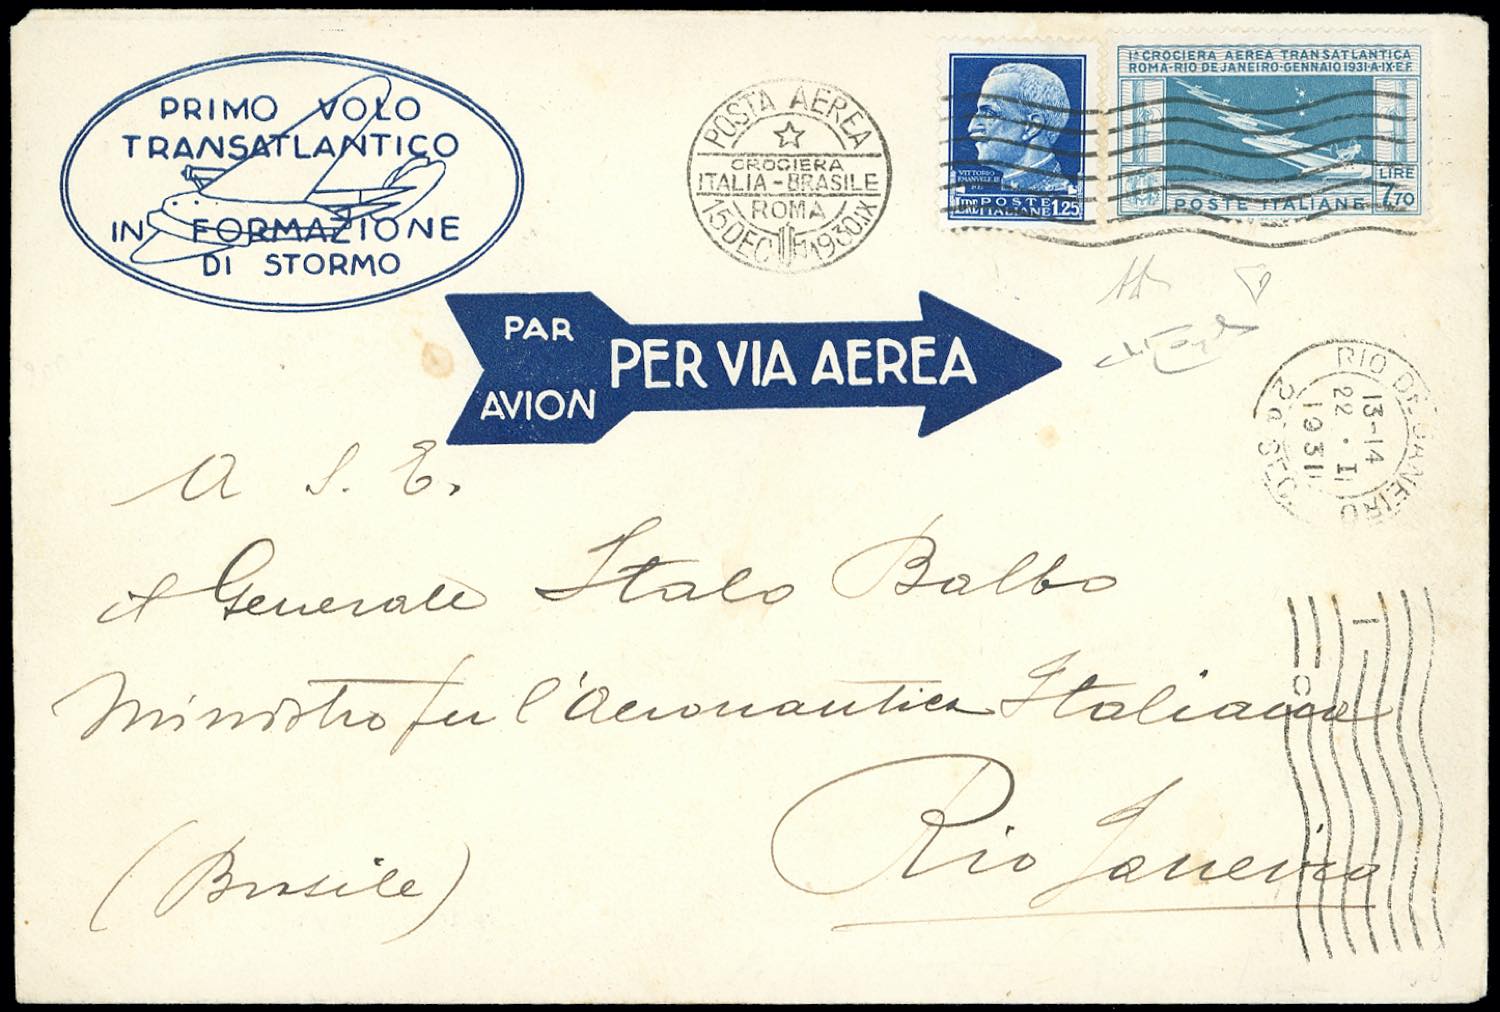 PRIMO VOLO
TRANSATLANTICO
IN FORMAZIONE
DI STORMO
POSTA AEREA
CROCIERA
ITALIA-BRASILE
ROMA
15 DEC 1930.IX
VITTORIO
EMANUELE III
RE
LIRE POSTE
ITALIANE 1.25
1ª CROCIERA AEREA TRANSATLANTICA
ROMA-RIO DE JANEIRO-GENNAIO 1931-A.IX-E.F.
LIRE
7,70
POSTE ITALIANE
PAR
AVION
PER VIA AEREA
RIO DE JANEIRO
13-14
22.II
1931
2ª SEC
A S. E.
il Generale Italo Balbo
Ministro per l'Aeronautica Italiana
Rio Janeiro
(Brasile)